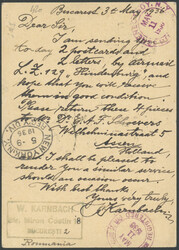 Bucarest 3d May 1936
Dear Sir,
I am sending
to-day 2 postcards and
2 letters, by airmail
L.Z. 129, "Hindenburg" and
hope that you will receive
them in good condition.
Please return these 4 pieces
to Mr. D. E. A. F. Schoevers
Wilhelminastraat 5
Assen
Holland
I shall be pleased to
render you a similar service
should an occasion occur.
With best thanks
Yours very truly,
W. Karnbach
W. KARNBACH
Str. Miron Costin 18
BUCUREŞTI 2
Roumania